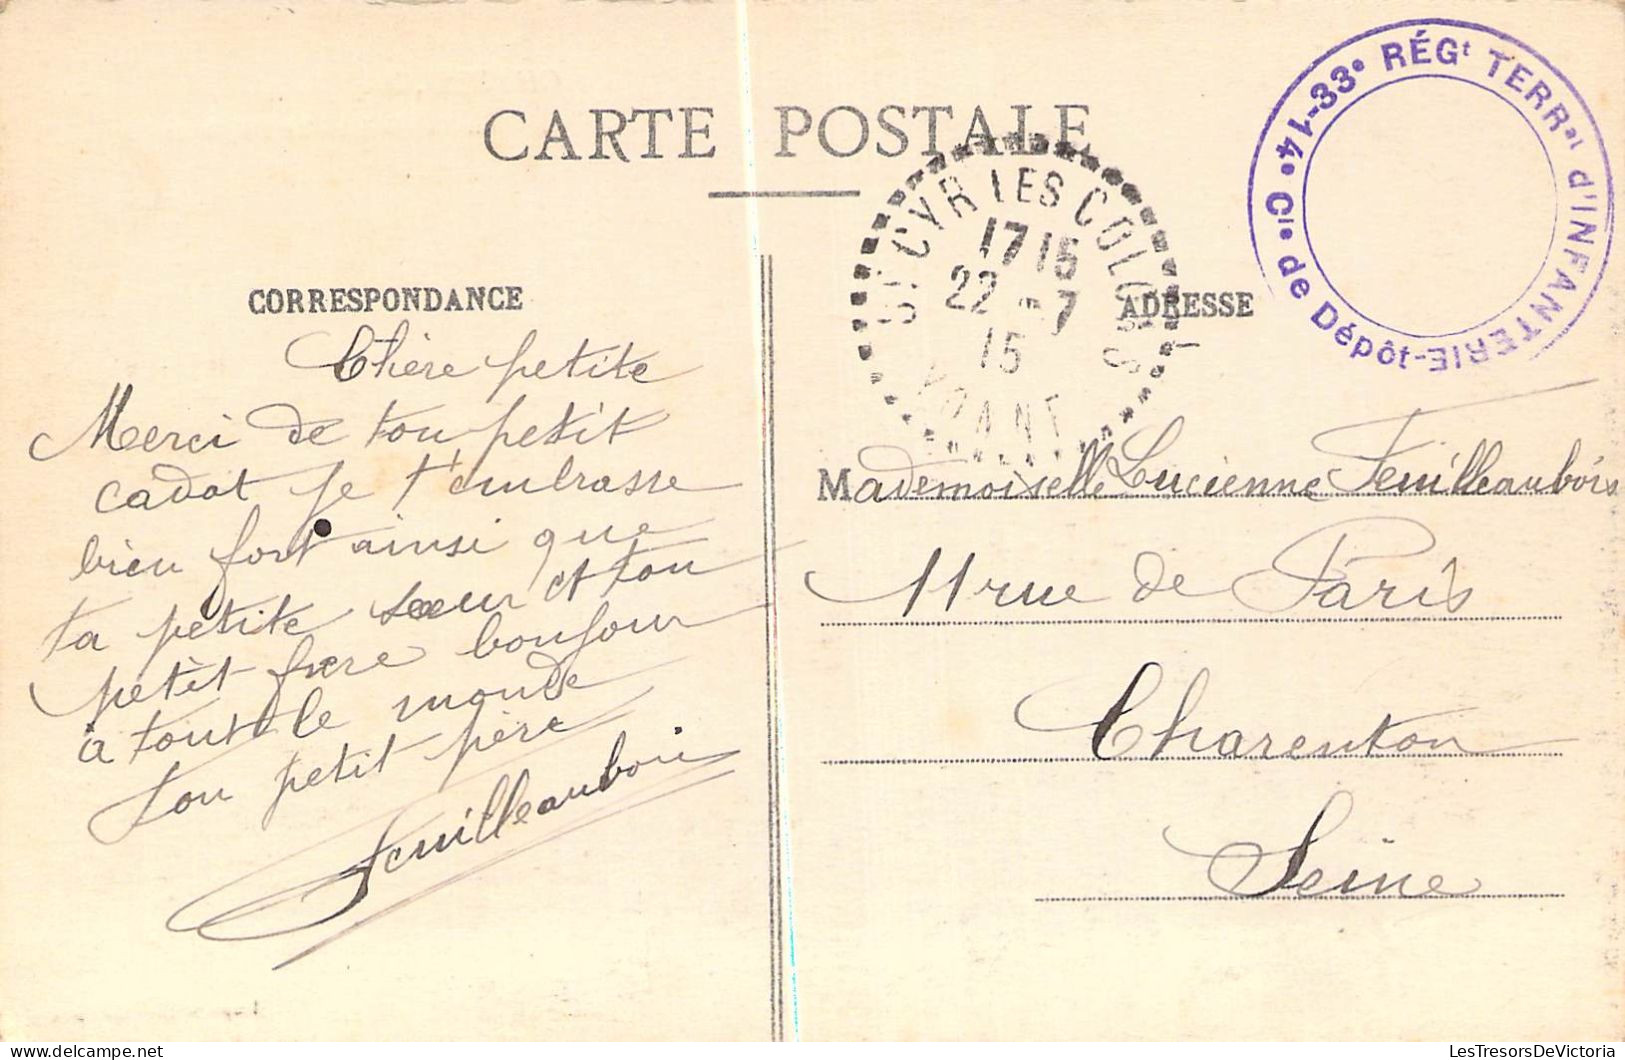 CARTE POSTALE
33e RÉGt TERRal d'INFANTERIE-
14e Cie de Dépôt-
ST CYR LES COLONS
17 15
22 -7
15
YONNE
CORRESPONDANCE
Chère petite
Merci de ton petit
cadot je t'embrasse
bien fort ainsi que
ta petite sœur et ton
petit frere bonjour
a tout le monde
ton petit père
Feuilleaubois
ADRESSE
Mademoiselle Lucienne Feuilleaubois
11 rue de Paris
Charenton
Seine
LesTresorsDeVictoria